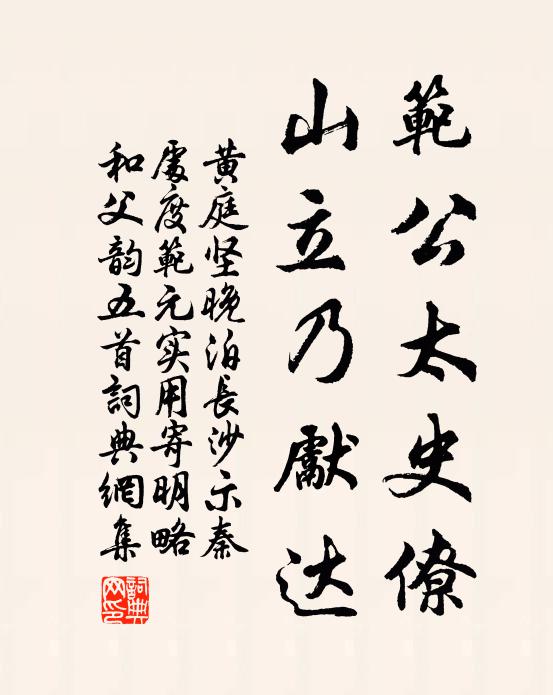 範公太史僚
山立乃獻达
黄庭坚晚泊長沙示秦
處度範元实用寄明略
和父韵五首詞典網集
詞典网印